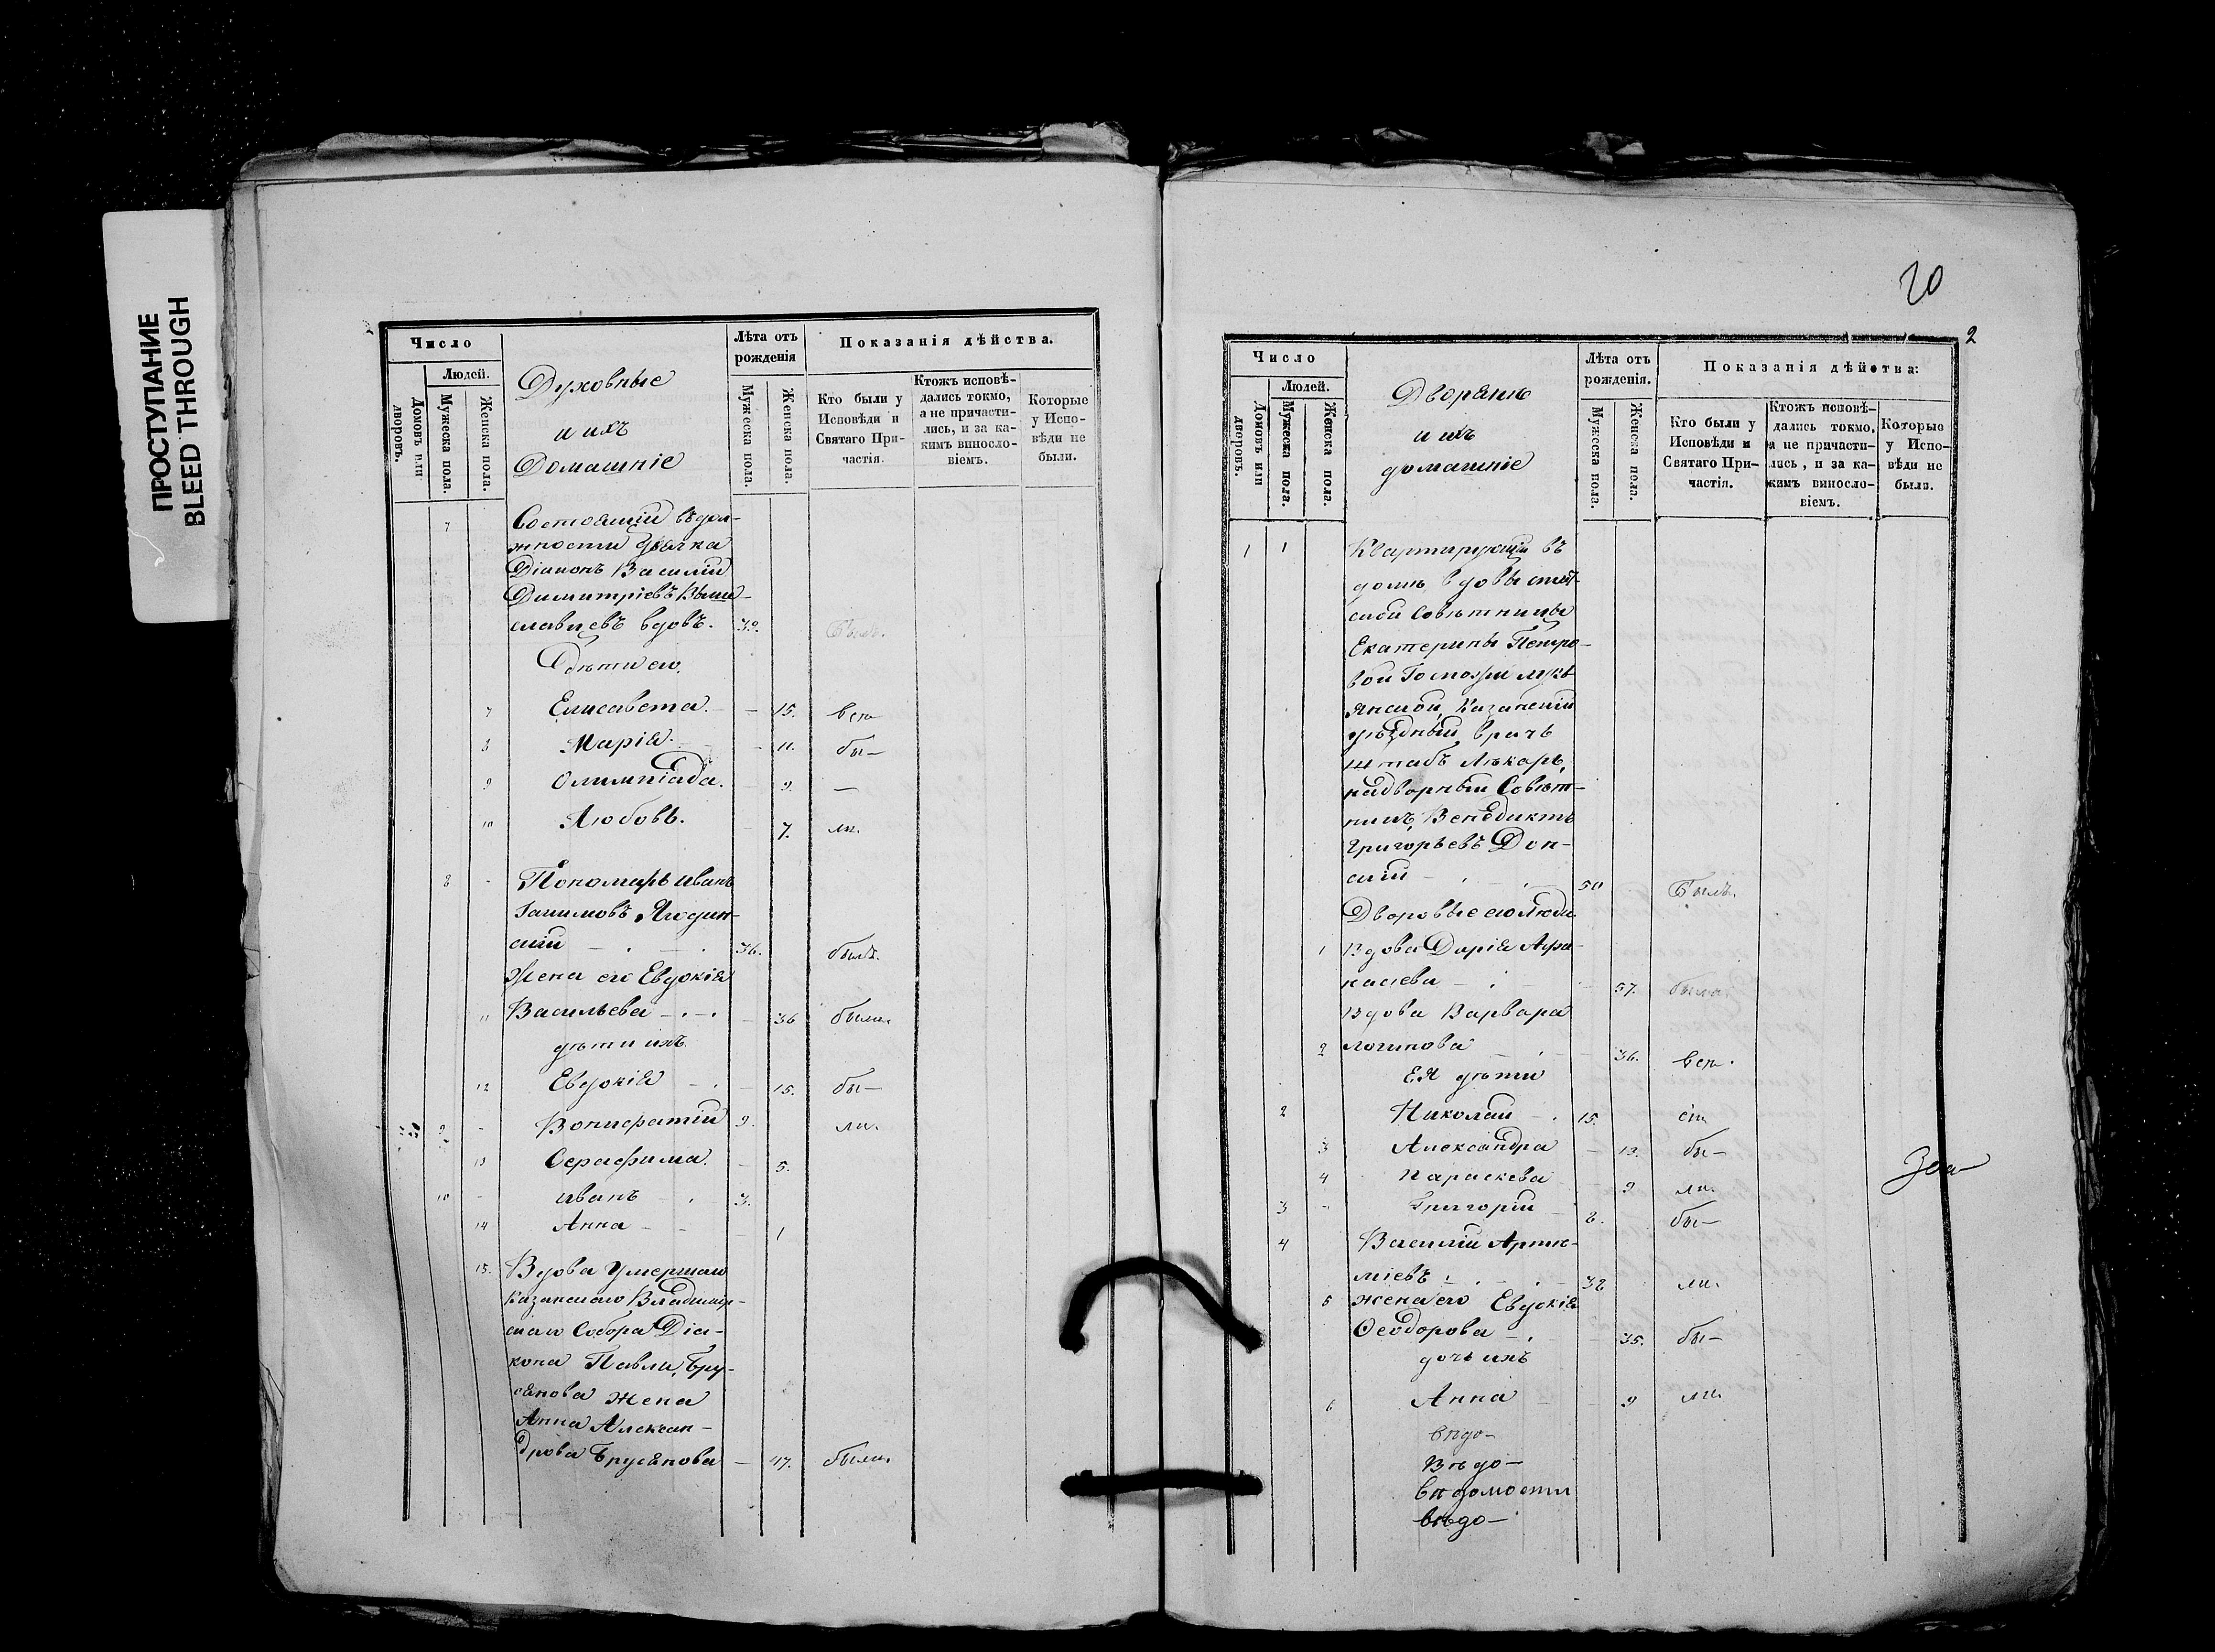 ПРОСТУПАНИЕ
BLEED THROUGH
Число
Людей.
Домовъ или дворовъ.
Мужеска пола.
Женска пола.
Духовные
и ихъ
Домашніе
Лѣта отъ рожденія
Мужеска пола.
Женска пола.
Показанія дѣйства.
Кто были у Исповѣди и Святаго Причастія.
Ктожъ исповѣдались токмо, а не причастились, и за какимъ винословіемъ.
Которые у Исповѣди не были.
7 Состоящій въ дол-
жности дьячка
Діаконъ Василій
Димитріевъ Выши-
славцевъ вдовъ. 39. Былъ.
Дѣти его.
7 Елисавета. — 15. всѣ
8 Марія. — 11. бы—
9 Олимпіада. — 9. —
10 Любовь. — 7. ли.
8 - Пономарь Иванъ
Ягодин-
скій — . — . 36. былъ.
Жена его Евдокія
11 Васильева — . — . — 36 были.
дѣти ихъ
12 Евдокія — . — 15. бы—
9 - Вонифатій 9. ли.
13 Серафима. — 5.
10 - Иванъ — . 3.
14 Анна — — — 1
15. Вдова умершаго
Казанскаго Владимір-
скаго Собора Діа-
кона Павла Бру-
сянова жена
Анна Алексан-
дрова Брусянова — 47. были.
20
2
Число
Людей.
Домовъ или дворовъ.
Мужеска пола.
Женска пола.
Дворяне
и ихъ
домашніе
Лѣта отъ рожденія.
Мужеска пола.
Женска пола.
Показанія дѣйства:
Кто были у Исповѣди и Святаго Причастія.
Ктожъ исповѣдались токмо, а не причастились, и за какимъ винословіемъ.
Которые у Исповѣди не были.
1 1 Квартирующій въ
домѣ вдовы стат-
ской Совѣтницы
Екатерины Петро-
вой Госпожи
Казанскій
уѣздный врачъ
штабъ Лѣкарь,
надворный Совѣт-
никъ, Венедиктъ
Григорьевъ Дон-
скій — . — . — 50 Былъ.
Дворовые его люди
1 Вдова Дарія Афа-
насьева — . — 57. была.
Вдова Варвара
2 Логинова — . — 36. всѣ.
Ея дѣти
2 Николай — . 15.
3 Александра — 13. бы—
4 Параскева 9 ли.
3 - Григорій — 8. бы—
4 Василій Арте-
міевъ . — . — 38 ли.
5 жена его Евдокія
Ѳеодорова — . — 35. бы—
дочь ихъ
6 Анна — — 9 ли.
вѣдо-
Вѣдо—
вѣдомости
вѣдо—